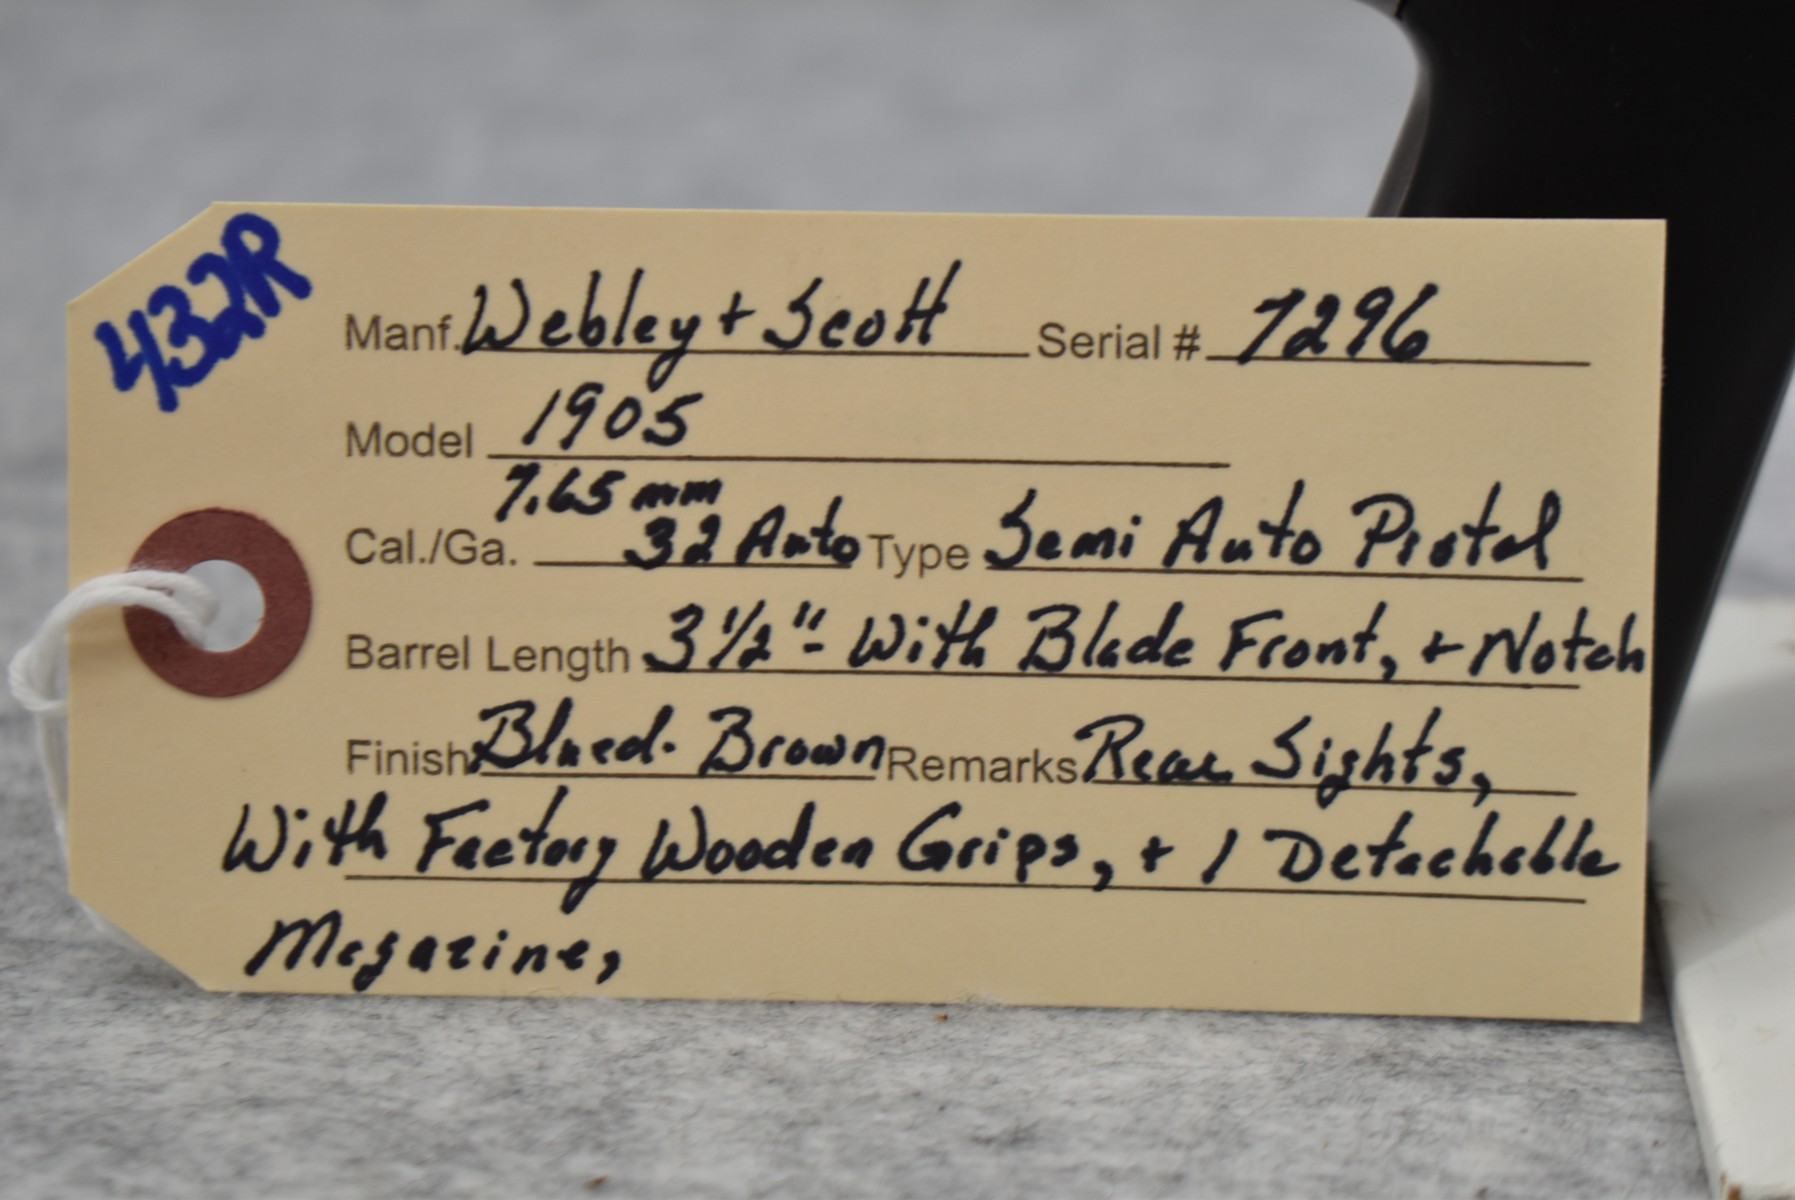 432R
Manf. Webley + Scott Serial # 7296
Model 1905
7.65 mm
Cal./Ga. 32 Auto Type Semi Auto Pistol
Barrel Length 3 1/2" - With Blade Front, + Notch
Finish Blued. Brown Remarks Rear Sights,
With Factory Wooden Grips, + 1 Detachable
Magazine,